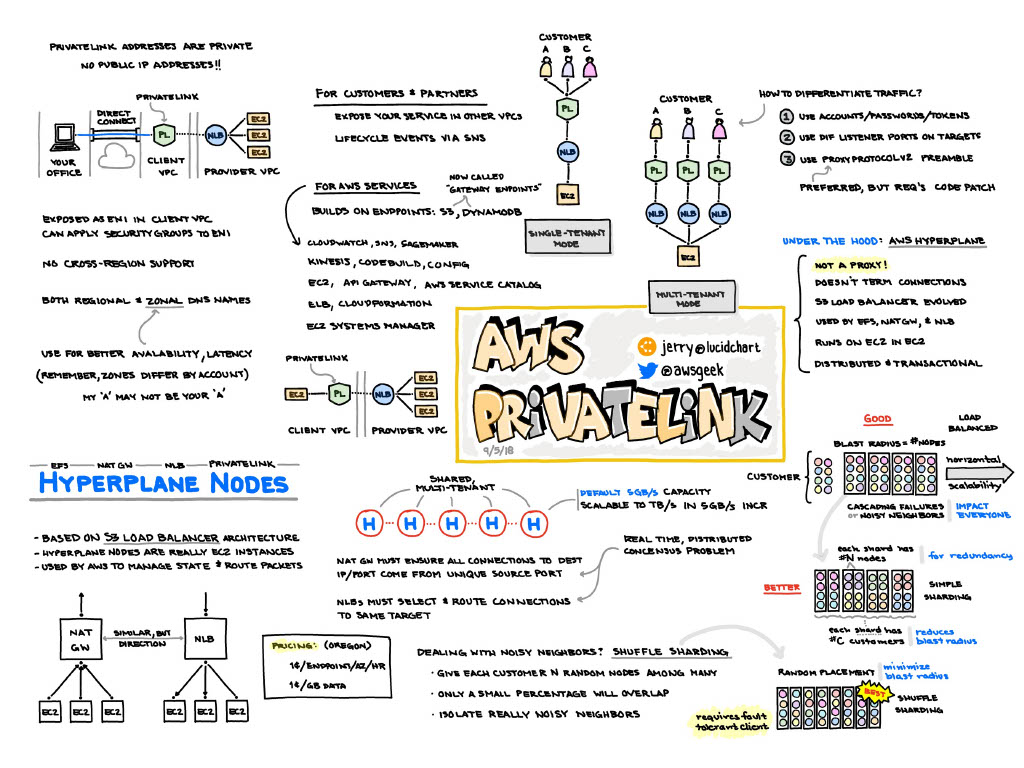 PRIVATELINK ADDRESSES ARE PRIVATE
NO PUBLIC IP ADDRESSES!!
PRIVATELINK
DIRECT
CONNECT
PL
NLB
EC2
EC2
EC2
YOUR
OFFICE
CLIENT
VPC
PROVIDER VPC
EXPOSED AS ENI IN CLIENT VPC
CAN APPLY SECURITY GROUPS TO ENI
NO CROSS-REGION SUPPORT
BOTH REGIONAL & ZONAL DNS NAMES
USE FOR BETTER AVALABILITY, LATENCY
(REMEMBER, ZONES DIFFER BY ACCOUNT)
MY 'A' MAY NOT BE YOUR 'A'
FOR CUSTOMERS & PARTNERS
EXPOSE YOUR SERVICE IN OTHER VPCS
LIFECYCLE EVENTS VIA SNS
FOR AWS SERVICES
NOW CALLED
"GATEWAY ENPOINTS"
BUILDS ON ENDPOINTS: S3, DYNAMODB
CLOUDWATCH, SNS, SAGEMAKER
KINESIS, CODEBUILD, CONFIG
EC2, API GATEWAY, AWS SERVICE CATALOG
ELB, CLOUDFORMATION
EC2 SYSTEMS MANAGER
PRIVATELINK
EC2
PL
NLB
EC2
EC2
EC2
CLIENT VPC
PROVIDER VPC
CUSTOMER
A B C
PL
NLB
EC2
SINGLE-TENANT
MODE
CUSTOMER
A B C
PL PL PL
NLB NLB NLB
EC2
MULTI-TENANT
MODE
HOW TO DIFFERENTIATE TRAFFIC?
1 USE ACCOUNTS/PASSWORDS/TOKENS
2 USE DIF LISTENER PORTS ON TARGETS
3 USE PROXYPROTOCOLV2 PREAMBLE
PREFERRED, BUT REQ'S CODE PATCH
UNDER THE HOOD: AWS HYPERPLANE
NOT A PROXY!
DOESN'T TERM CONNECTIONS
S3 LOAD BALANCER EVOLVED
USED BY EFS, NAT GW, & NLB
RUNS ON EC2 IN EC2
DISTRIBUTED & TRANSACTIONAL
AWS
PRIVATELINK
jerry@lucidchart
@awsgeek
9/5/18
EFS NAT GW NLB PRIVATELINK
HYPERPLANE NODES
- BASED ON S3 LOAD BALANCER ARCHITECTURE
- HYPERPLANE NODES ARE REALLY EC2 INSTANCES
- USED BY AWS TO MANAGE STATE & ROUTE PACKETS
NAT
GW
SIMILAR, BUT
DIRECTION
NLB
EC2 EC2 EC2
EC2 EC2 EC2
PRICING: (OREGON)
1¢/ENDPOINT/AZ/HR
1¢/GB DATA
SHARED,
MULTI-TENANT
H H H H H
DEFAULT 5GB/S CAPACITY
SCALABLE TO TB/S IN 5GB/S INCR
REAL TIME, DISTRIBUTED
CONCENSUS PROBLEM
NAT GW MUST ENSURE ALL CONNECTIONS TO DEST
IP/PORT COME FROM UNIQUE SOURCE PORT
NLBS MUST SELECT & ROUTE CONNECTIONS
TO SAME TARGET
DEALING WITH NOISY NEIGHBORS? SHUFFLE SHARDING
· GIVE EACH CUSTOMER N RANDOM NODES AMONG MANY
· ONLY A SMALL PERCENTAGE WILL OVERLAP
· ISOLATE REALLY NOISY NEIGHBORS
GOOD
LOAD
BALANCED
BLAST RADIUS = #NODES
CUSTOMER
horizontal
scalability
CASCADING FAILURES
or NOISY NEIGHBORS
IMPACT
EVERYONE
each shard has
#N nodes
for redundancy
BETTER
SIMPLE
SHARDING
each shard has
#C customers
reduces
blast radius
RANDOM PLACEMENT
minimize
blast radius
BEST
SHUFFLE
SHARDING
requires fault
tolerant client